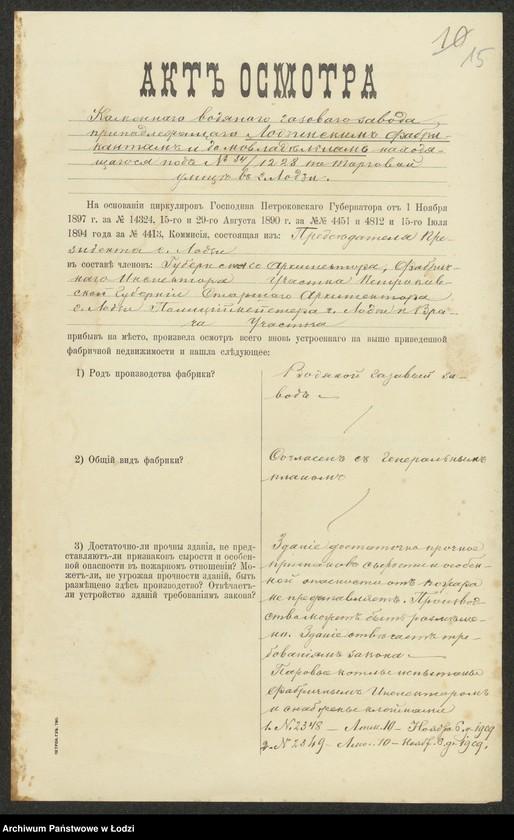 10
15
АКТЪ ОСМОТРА
водяного газоваго завода,
принадлежащаго Лодзинскимъ фабри-
кантамъ и домовладѣльцамъ находя-
щагося подъ № 34/1228 по Торговой
улицѣ въ г. Лодзи.
На основаніи циркуляровъ Господина Петроковскаго Губернатора отъ 1 Ноября
1897 г. за № 14324, 15-го и 29-го Августа 1890 г. за №№ 4451 и 4812 и 15-го Іюля
1894 года за № 4413, Комисія, состоящая изъ: Предсѣдателя Пре-
зидента г. Лодзи
въ составѣ членовъ: Губернскаго Архитектора, Фабрич-
наго Инспектора Участка Петроков-
ской Губерніи Старшаго Архитектора
г. Лодзи Полиціймейстера г. Лодзи и Вра-
ча Участка
прибывъ на мѣсто, произвела осмотръ всего вновь устроеннаго на выше приведенной
фабричной недвижимости и нашла слѣдующее:
1) Родъ производства фабрики?
Водяной газовый за-
водъ
2) Общій видъ фабрики?
Согласенъ съ генеральнымъ
планомъ
3) Достаточно-ли прочны зданія, не пред-
ставляютъ-ли признаковъ сырости и особен-
ной опасности въ пожарномъ отношеніи? Мо-
жетъ-ли, не угрожая прочности зданій, быть
размѣщено здѣсь производство? Отвѣчаетъ-
ли устройство зданій требованіямъ закона?
Зданіе достаточно прочное
признаковъ сырости и особен-
ной опасности отъ пожара
не представляетъ. Производ-
ство можетъ быть размѣще-
но. Зданіе отвѣчаетъ тре-
бованіямъ закона.
Паровые котлы испытаны
Фабричнымъ Инспекторомъ
и снабжены клеймами
1. № 2348 — Атм. 10 — Ноября 6 д. 1909
2. № 2349 — Атм. 10 — Ноябр. 6 д. 1909.
ПЕТРОК. ГУБ. ТИП.
Archiwum Państwowe w Łodzi